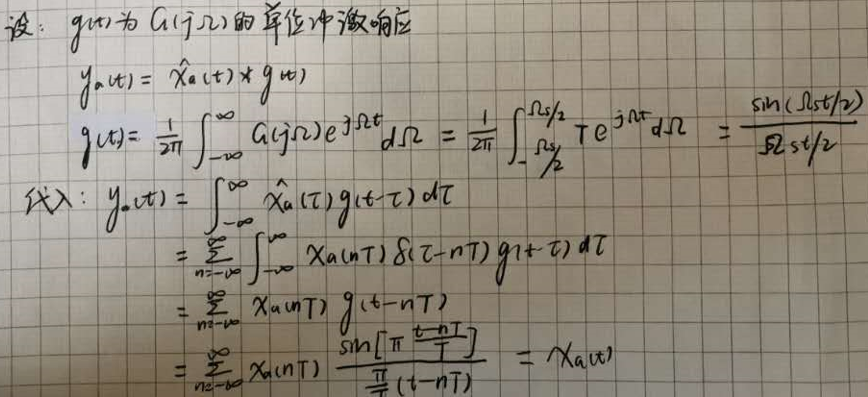 设: g(t)为 G(jΩ)的单位冲激响应
yₐ(t) = x̂ₐ(t) * g(t)
g(t) = 1/2π ∫_{-∞}^{∞} G(jΩ)e^{jΩt}dΩ = 1/2π ∫_{-Ωs/2}^{Ωs/2} T e^{jΩt}dΩ = sin(Ωst/2) / Ωst/2
代入: yₐ(t) = ∫_{-∞}^{∞} x̂ₐ(τ)g(t-τ)dτ
= ∑_{n=-∞}^{∞} ∫_{-∞}^{∞} xₐ(nT)δ(τ-nT)g(t-τ)dτ
= ∑_{n=-∞}^{∞} xₐ(nT) g(t-nT)
= ∑_{n=-∞}^{∞} xₐ(nT) sin[π (t-nT)/T] / π/T (t-nT) = xₐ(t)